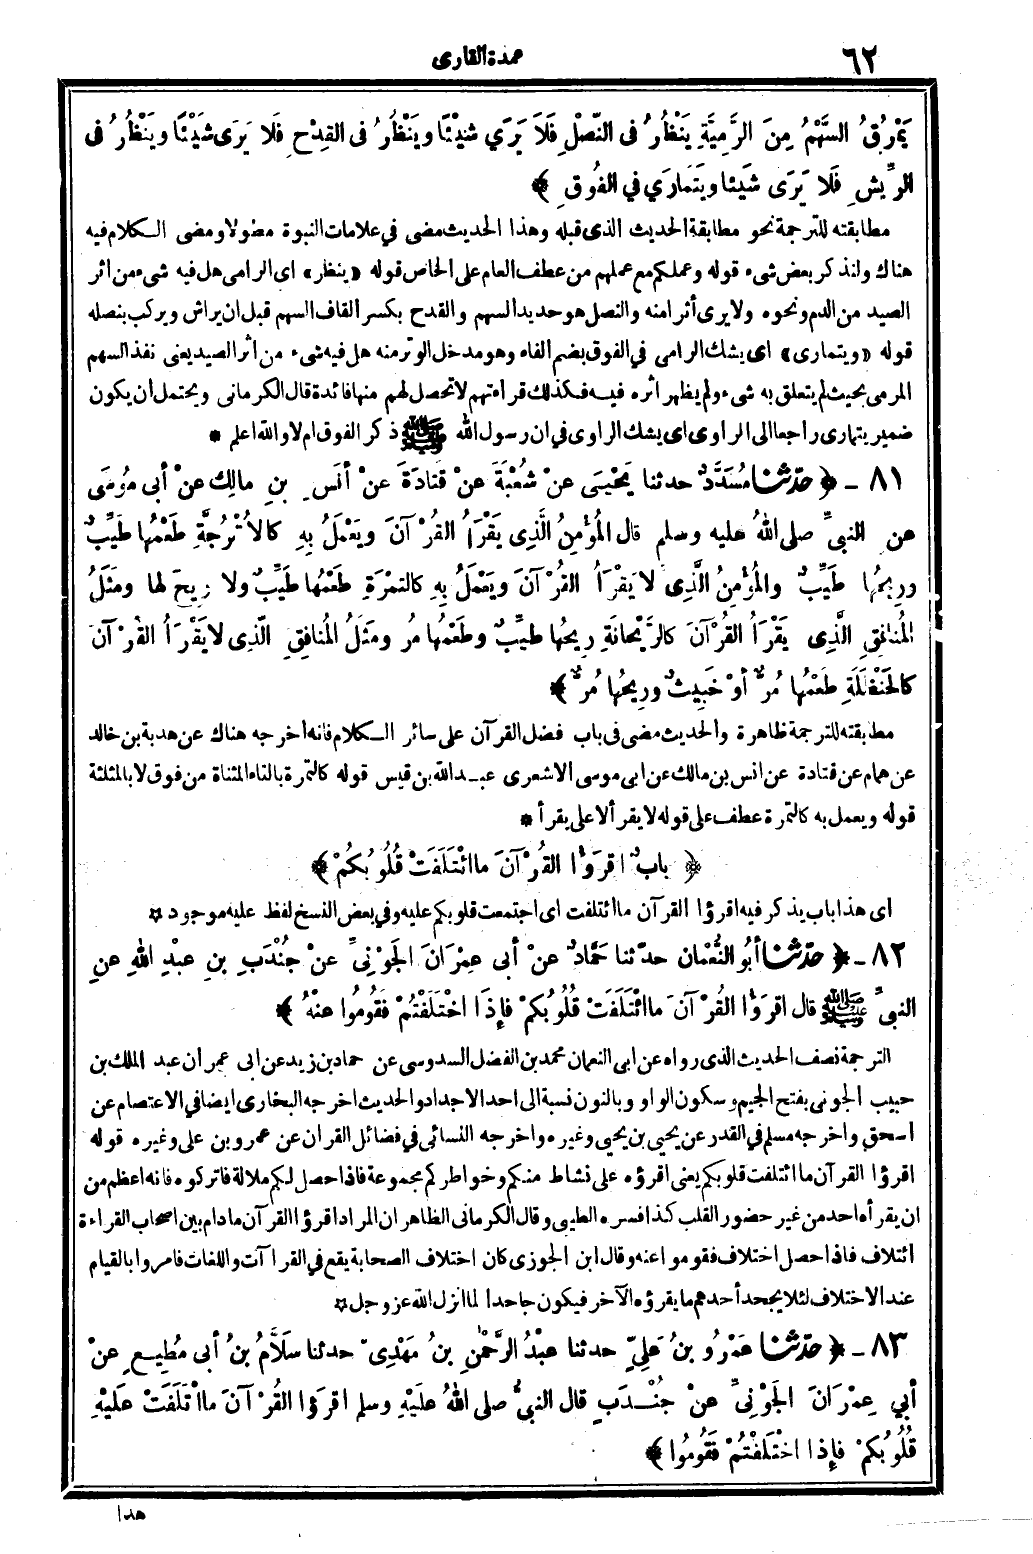 ٦٢
عمدة القارى
يَمْرُقُ السَّهْمُ مِنَ الرَّمِيَّةِ يَنْظُرُ فى النَّصْلِ فَلاَ يَرَي شَيْئًا ويَنْظُرُ فى القِدْحِ فَلا يَرَى شَيْئًا ويَنْظُرُ فى
الرِّيشِ فَلا يَرَى شَيئا ويَتَمارَي في الفُوقِ ﴾
مطابقته للترجمة نحو مطابقة الحديث الذى قبله وهذا الحديث مضى في علامات النبوة مطولا ومضى الكلام فيه
هناك ولنذكر بعض شىء قوله وعملكم مع عملهم من عطف العام على الخاص قوله «ينظر» اى الرامى هل فيه شىء من اثر
الصيد من الدم ونحوه ولايرى أثرا منه والنصل هو حديد السهم والقدح بكسر القاف السهم قبل ان يراش ويركب بنصله
قوله «ويتمارى» اى يشك الرامى في الفوق بضم الفاء وهو مدخل الوتر منه هل فيه شىء من اثر الصيد يعنى نفذ السهم
المرمى بحيث لم يتعلق به شىء ولم يظهر اثره فيه فكذلك قراءتهم لاتحصل لهم منها فائدة قال الكرمانى ويحتمل ان يكون
ضمير يتمارى راجعا الى الراوى اى يشك الراوى في ان رسول الله ﷺ ذكر الفوق ام لا والله اعلم *
٨١ ـ ﴿ حدّثنا مُسَدَّدٌ حدثنا يَحْيَى عنْ شُعْبَةَ عنْ قَتادَةَ عنْ أنَسِ بنِ مالِك عنْ أبى مُوسَى
عنِ النبىِّ صلى اللهُ عليه وسلم قال المُؤمِنُ الَّذِى يَقْرَأُ القُرْآنَ ويَعْمَلُ بِهِ كالأُتْرُجَّةِ طَعْمُها طَيِّبٌ
ورِيحُها طَيِّبٌ والمُؤْمِنُ الَّذِى لا يَقْرَأُ القُرْآنَ ويَعْمَلُ بِهِ كالتمْرَةِ طَعْمُها طَيِّبٌ ولا رِيحَ لها ومَثَلُ
المُنافِقِ الَّذِى يَقْرَأُ القُرْآنَ كالرَّيْحانَةِ رِيحُها طيِّبٌ وطَعْمُها مُر ومثَلُ المُنافِقِ الَّذِى لا يَقْرَأُ القُرْآنَ
كالحَنْظَلَةِ طَعْمُها مُرٌّ أوْ خَبِيثٌ ورِيحُها مُرٌّ ﴾
مطابقته للترجمة ظاهرة والحديث مضى فى باب فضل القرآن على سائر الكلام فانه أخرجه هناك عن هدبة بن خالد
عن همام عن قتادة عن انس بن مالك عن ابى موسى الاشعرى عبد الله بن قيس قوله كالتمرة بالتاء المثناة من فوق لا بالمثلثة
قوله ويعمل به كالتمرة عطف على قوله لا يقرأ لا على يقرأ *
﴿ بابٌ اقرَؤا القُرْآنَ ما ائْتَلَفَتْ قُلُوبُكُمْ ﴾
اى هذا باب يذكر فيه اقرؤا القرآن ما ائتلفت اى اجتمعت قلوبكم عليه وفي بعض النسخ لفظ عليه موجود ☆
٨٢ ـ ﴿ حدّثنا أبُو النُّعْمان حدّثنا حَمَّادٌ عنْ أبى عِمْرَانَ الجَوْنِىِّ عنْ جُنْدَبِ بنِ عبْدِ اللهِ عنِ
النبىِّ ﷺ قال اقرَؤا القُرْآنَ ما ائْتَلَفَتْ قُلُوبُكمْ فإِذَا اخْتَلَفْتُمْ فَقُومُوا عنْهُ ﴾
الترجمة نصف الحديث الذى رواه عن ابى النعمان محمد بن الفضل السدوسى عن حماد بن زيد عن ابى عمران عبد الملك بن
حبيب الجونى بفتح الجيم وسكون الواو وبالنون نسبة الى احد الاجداد والحديث اخرجه البخارى ايضا في الاعتصام عن
اسحق واخرجه مسلم في القدر عن يحيى بن يحيى وغيره واخرجه النسائى في فضائل القران عن عمرو بن على وغيره قوله
اقرؤا القرآن ما ائتلفت قلوبكم يعنى اقرؤه على نشاط منكم وخواطركم مجموعة فاذا حصل لكم ملالة فاتركوه فانه اعظم من
ان يقرأه احد من غير حضور القلب كذا فسره الطيبى وقال الكرمانى الظاهر ان المراد اقرؤا القرآن ما دام بين اصحاب القراءة
ائتلاف فاذا حصل اختلاف فقوموا عنه وقال ابن الجوزى كان اختلاف الصحابة يقع في القراآت واللغات فامروا بالقيام
عند الاختلاف لئلا يجحد أحدهم ما يقرؤه الآخر فيكون جاحدا لما انزل الله عز وجل ☆
٨٣ ـ ﴿ حدّثنا عَمْرُو بنُ عَلِيٍّ حدثنا عبْدُ الرَّحْمٰنِ بنُ مَهْدِىّ حدثنا سلَّامُ بنُ أبى مُطِيعٍ عنْ
أبي عِمْرَانَ الجَوْنِىِّ عنْ جُنْدَبٍ قال النبىُّ صلى اللهُ عَلَيْهِ وسلم اقرَؤا القُرْآنَ ما ائْتَلَفَتْ عَلَيْهِ
قُلُوبُكمْ فإِذا اخْتَلَفْتُمْ فَقُومُوا ﴾
هدا